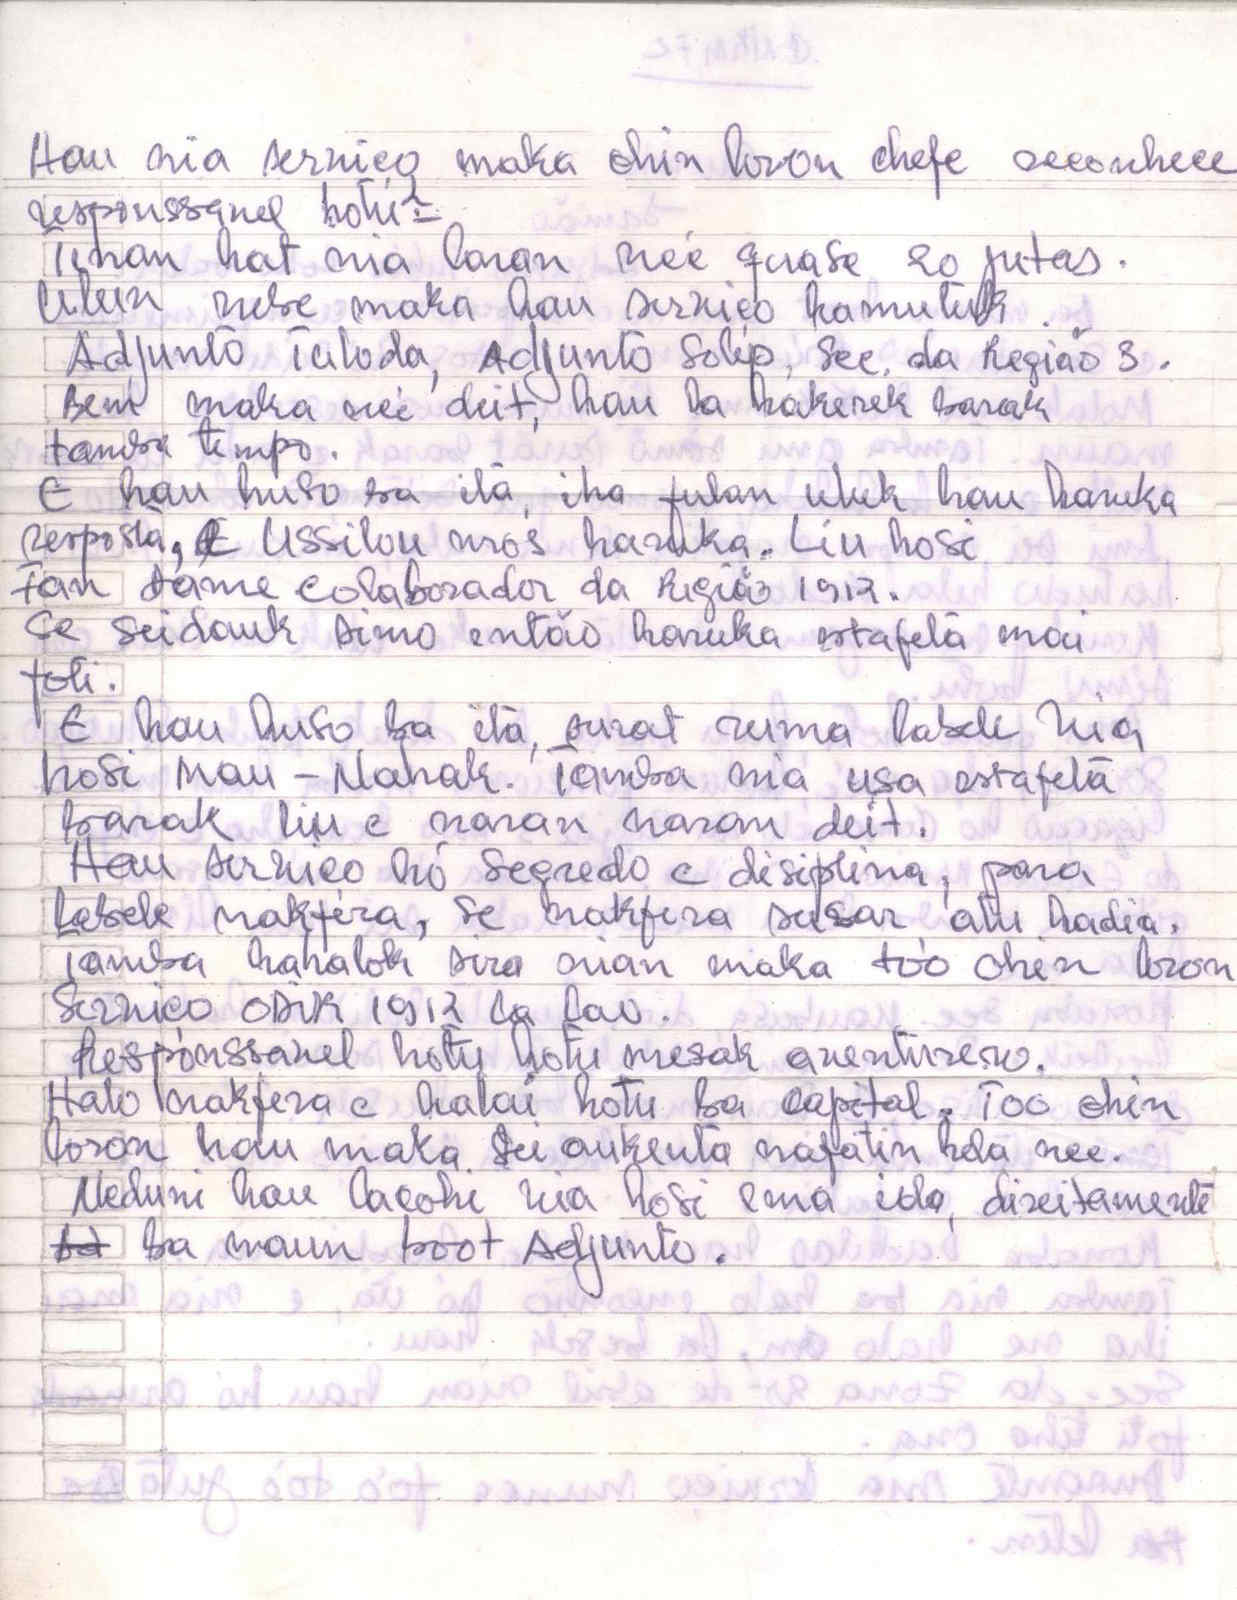 Hau nia serviço maka ohin loron chefe reconhece
responssavel hotu
Tinan hat nia laran neé quase 20 jutas.
Uluk nebe maka hau serviço hamutuk
Adjunto Taloda, Adjunto Solip, Sec. da Região 3.
Bem maka neé deit, hau la hakerek barak
tamba tempo.
E hau huso ba ita, iha fulan uluk hau haruka
resposta, E Ussilou mos haruka. Liu hosi
fan dame colaborador da Região 1912.
Se seidauk simo então haruka estafeta mai
foti.
E hau huso ba ita, surat ruma labele Nia
hosi Mau-Nahak. Tamba nia usa estafeta
barak liu e naran naran deit.
Hau serviço hó Segredo e disiplina, para
Labele nakfera, Se nakfera susar atu hadia.
Tamba hahalok sira nian maka toó ohin loron
Serviço OSIK 1912 la lao.
Responssavel hotu hotu mesak aventureiro.
Halo nakfera e halai hotu ba capital. Too ohin
loron hau maka sei aukenta nafatin hela nee.
Neduni hau lacohi nia hosi ema ida, direitamente
ba maun boot Adjunto.